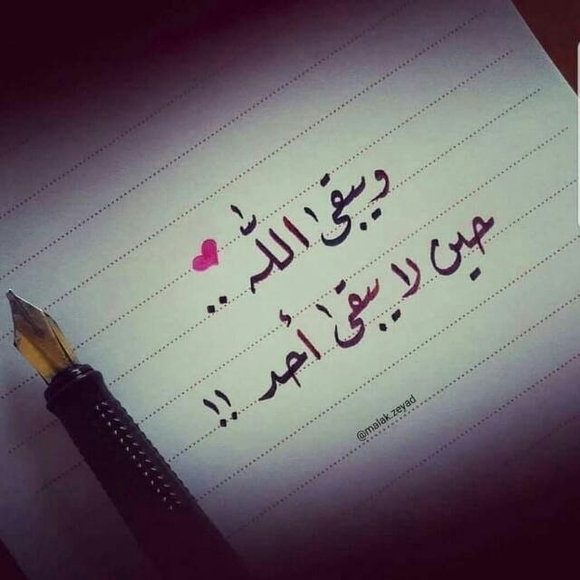 ويبقىٰ اللّٰه ..
حين لا يبقىٰ أحد !!
@malak.zeyad